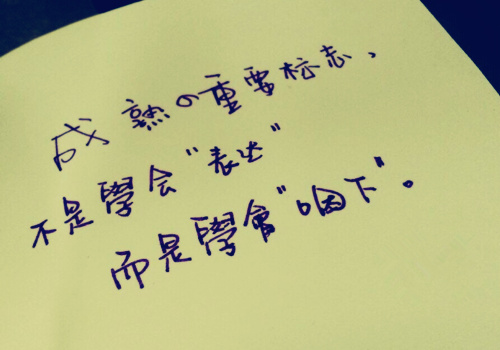 成熟の重要标志，
不是學会"表达"
而是學會"咽下"。